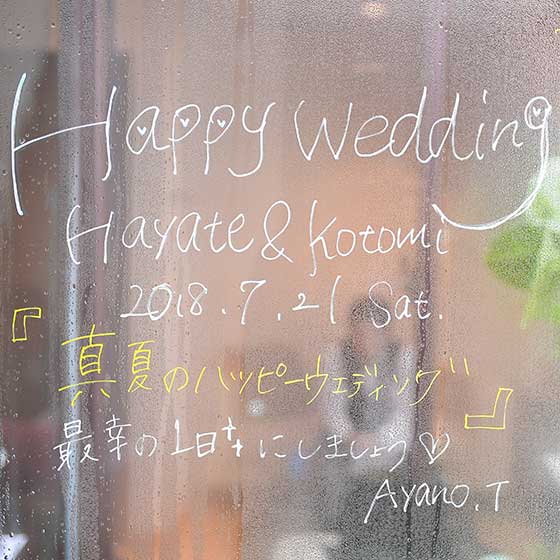 Happy Wedding
Hayate & Kotomi
2018.7.21 Sat.
『真夏のハッピーウェディング』
最幸の1日††にしましょう♡
Ayano.T